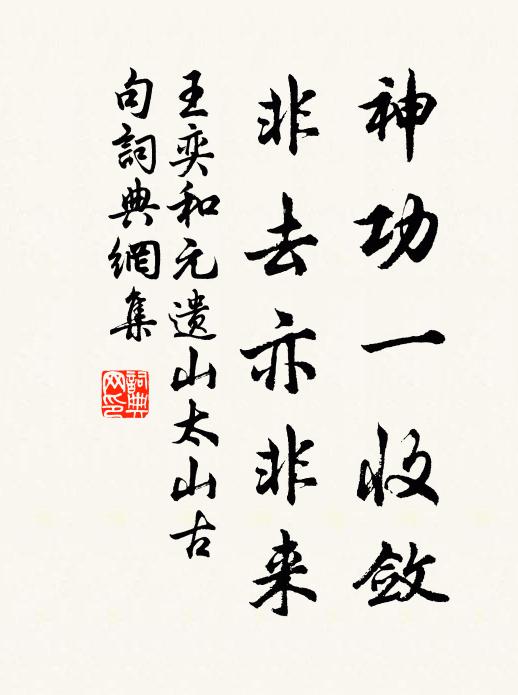 神功一收斂
非去亦非来
王奕和元遺山太山古
句詞典網集
詞典网印